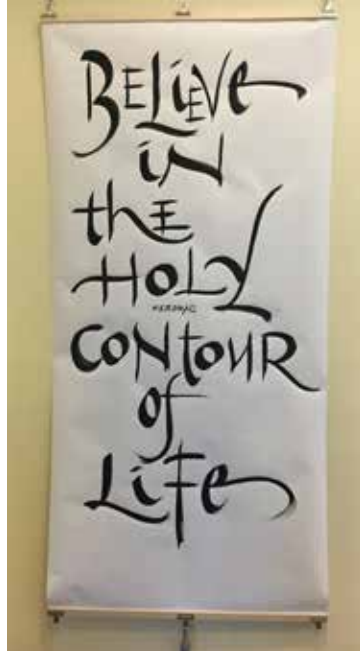 BELiEVe
iN
thE
HOLY
KEROUAC
CONtOUR
of
LiFe